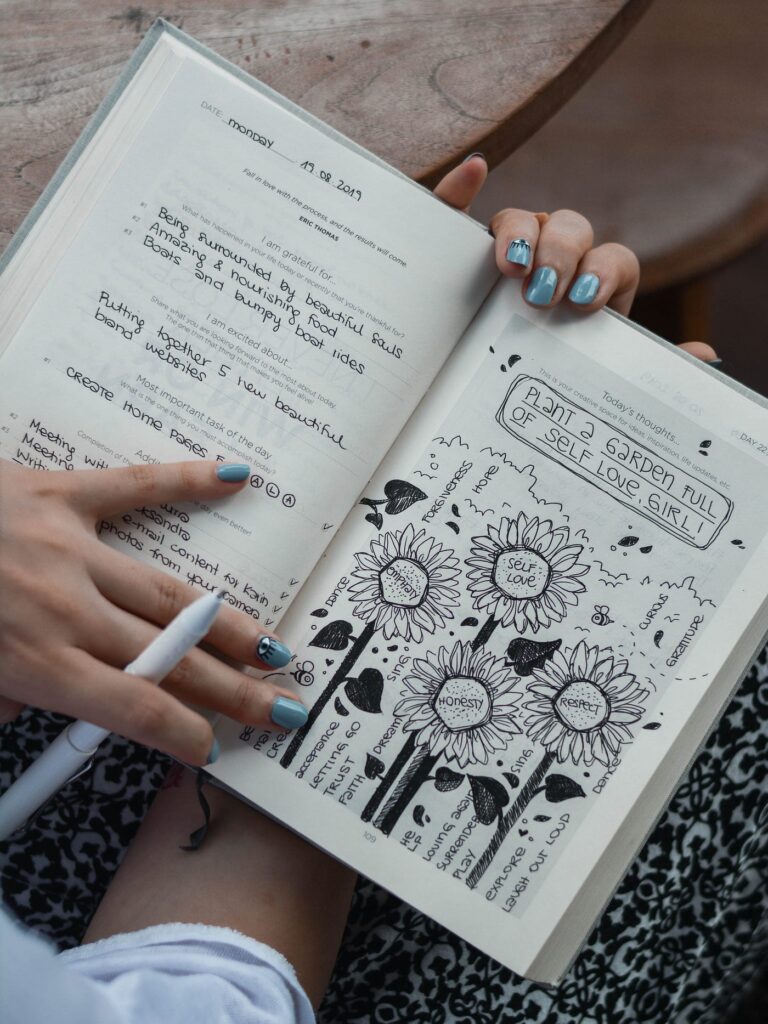 DATE: monday 19.08.2019
Fall in love with the process, and the results will come.
ERIC THOMAS
I am grateful for...
What has happened in your life today or recently that you're thankful for?
#1 Being surrounded by beautiful souls
#2 Amazing & nourishing food
#3 Boats and bumpy boat rides
I am excited about...
Share what you are looking forward to the most about today.
The one thing that makes you feel alive!
Putting together 5 new beautiful
brand websites
Most important task of the day
What is the one thing you must accomplish today?
#1 CREATE HOME PAGES
ALA
#2 Meeting with
#3 Meeting
e-mail content for Karin
photos from your camera
DAY 22
Today's thoughts...
This is your creative space for ideas, inspiration, life updates, etc.
PLANT A GARDEN FULL
OF SELF LOVE, GIRL!
FORGIVENESS
HOPE
SELF
LOVE
DANCE
SING
HONESTY
RESPECT
CURIOUS
GRATITUDE
acceptance
LETTING GO
TRUST
FAITH
Dream
HE
LP
LOVING AGAIN
SURRENDER
PLAY
SING
EXPLORE
LAUGH OUT LOUD
Dance
109